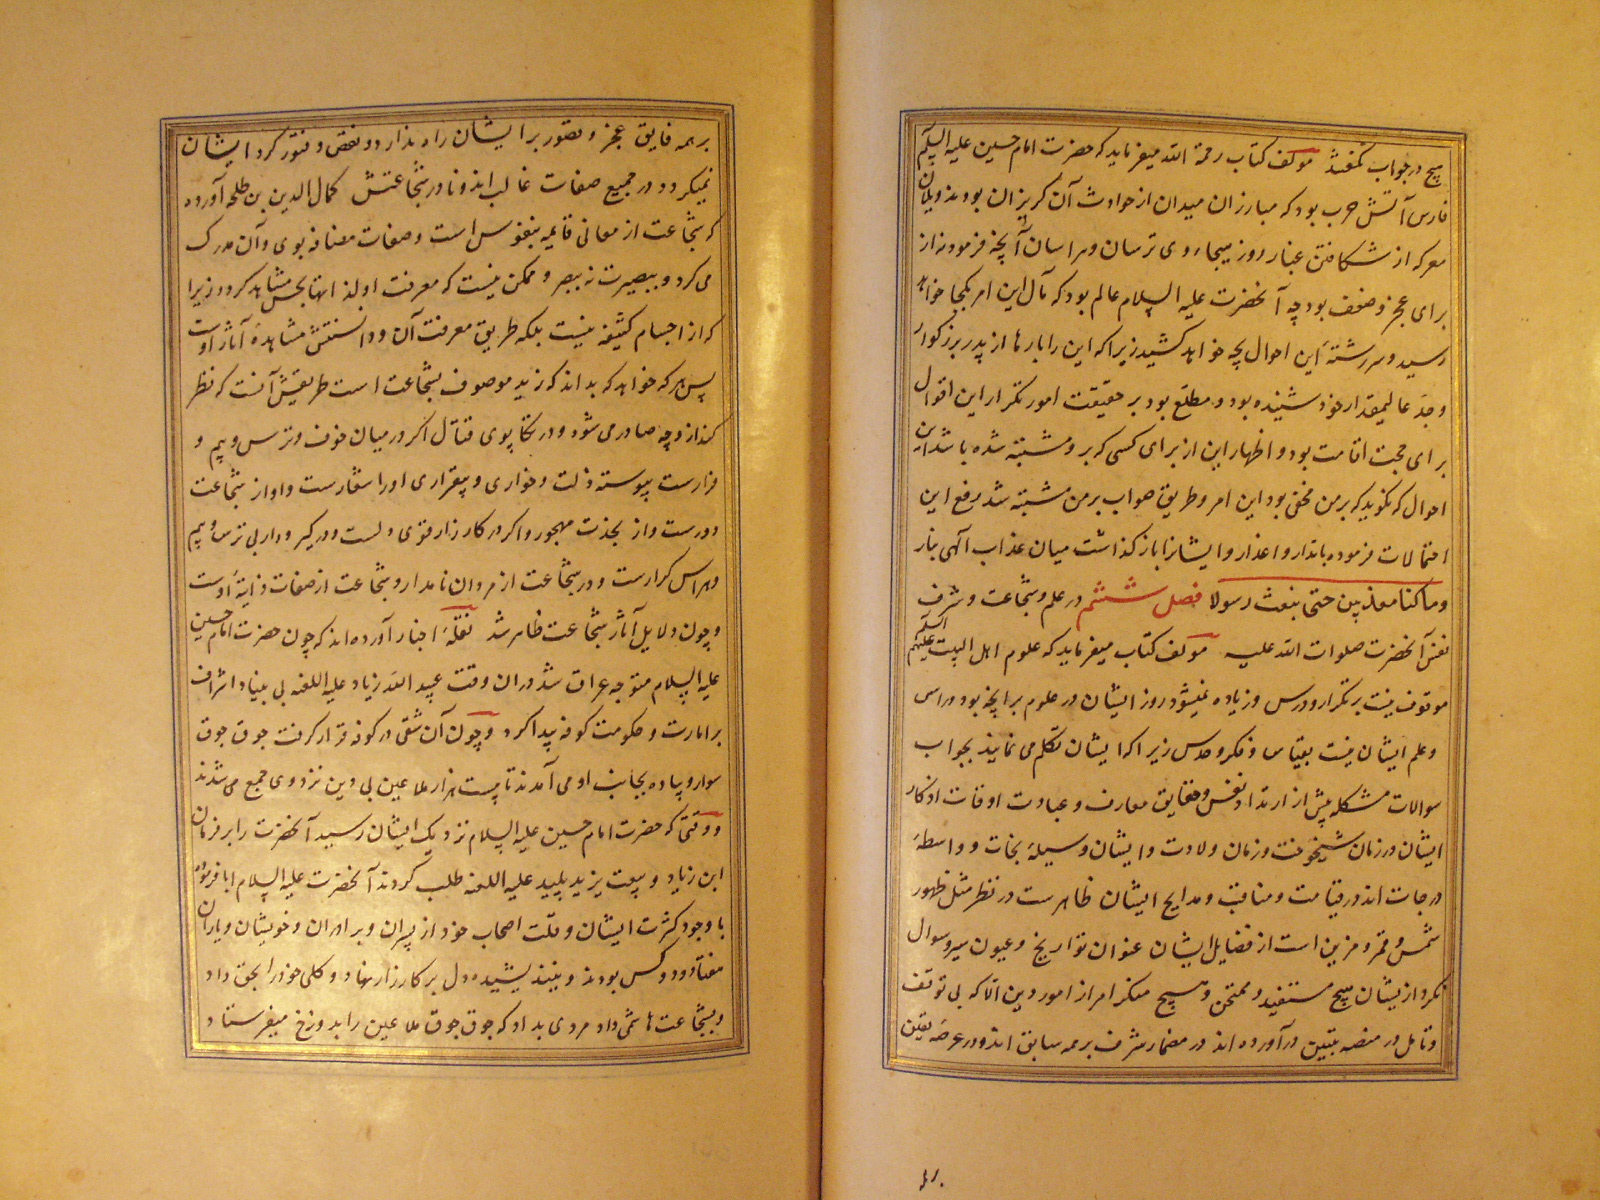 هیچ در جواب نگفتند مؤلف کتاب رحمة الله میفرماید که حضرت امام حسین علیه السلام
فارس آتش حرب بود که مبارزان میدان از حوادث آن گریزان بودند ویلان
معرکه از شکافتن غبار روز هیجاء وی ترسان وهراسان آنچه فرمودند از
برای عجز وضعف بود چه آنحضرت علیه السلام عالم بود که مآل این امر بکجا خواهد
رسید وسررشته این احوال بچه خواهد کشید زیرا که این را بارها از پدر بزرگوار
وجد عالیمقدار خود شنیده بود ومطلع بود بر حقیقت امور تکرار این اقوال
برای حجت اقامت بود واظهار این از برای کسی که برو مشتبه شده باشد این
احوال که نگوید که بر من مخفی بود این امر وطریق صواب بر من مشتبه شد رفع این
احتمالات فرموده بانذار واعذار وایشانرا باز گذاشت میان عذاب الهی بنار
وما کنا معذبین حتی نبعث رسولا فصل ششم در علم وشجاعت وشرف
نفس آنحضرت صلوات الله علیه مؤلف کتاب میفرماید که علوم اهل البیت علیهم السلام
موقوف نیست بر تکرار ودرس وزیاده نمیشود روز ایشان در علوم بر آنچه بود در امس
وعلم ایشان نیست بقیاس وفکر وحدس زیرا که ایشان تکلم می نمایند بجواب
سوالات مشکله پیش از ارتداد نفس وحقایق معارف وعبادت اوقات اذکار
ایشان در زمان شیخوخت وزمان ولادت وایشان وسیله نجات وواسطه
درجات اند در قیامت ومناقب ومدایح ایشان ظاهرست در نظر مثل ظهور
شمس وقمر ومزین است از فضایل ایشان عنوان تواریخ وعیون سیر وسوال
نکرد از یشان هیچ مستفید وممتحن وهیچ منکر امر از امور دین الا که بی توقف
وتامل در منصه تبیین در آورده اند در مضمار شرف بر همه سابق اند ودر عرصه یقین
بر همه فایق عجز وقصور بر ایشان راه ندارد ونقص وفتور گرد ایشان
نمیگردد ودر جمیع صفات غالب اند ونادر شجاعتش کمال الدین بن طلحه آورده
که شجاعت از معانی قایمه بنفوس است وصفات مضافه بوی وآن مدرک
می گردد ببصیرت نه ببصر وممکن نیست که معرفت او لذاتها بحس مشاهد گردد زیرا
که از اجسام کثیفه نیست بلکه طریق معرفت آن ودانستنش مشاهده آثار اوست
پس هر که خواهد که بداند که زید موصوف بشجاعت است طریقش آنست که نظر
کند از وچه صادر می شود ودر تکاپوی قتال اگر در میان خوف وترس وبیم و
فرارست پیوسته ذلت وخواری وبیقراری اورا شعارست واو از شجاعت
دورست واز نجدت مهجور واگر در کارزار قوی دلست ودر گیر ودار بی ترس وبیم
وهراس کرارست ودر شجاعت از مردان نامدار وشجاعت از صفات ذاتیه اوست
وچون دلایل آثار شجاعت ظاهر شد نقله اخبار آورده اند که چون حضرت امام حسین
علیه السلام متوجه عراق شد در ان وقت عبید الله زیاد علیه اللعنه بی بنیاد اشراف
بر امارت وحکومت کوفه پیدا کرد وچون آن شقی در کوفه قرار گرفت جوق جوق
سوار وپیاده بجانب او می آمدند تا بیست هزار ملاعین بی دین نزد وی جمع می شدند
ووقتی که حضرت امام حسین علیه السلام نزدیک ایشان رسید آنحضرت را بر فرمان
ابن زیاد وبیعت یزید پلید علیه اللعنه طلب کردند آنحضرت علیه السلام ابا فرمود
با وجود کثرت ایشان وقلت اصحاب خود از پسران وبرادران وخویشان ویاران
هفتاد ودو کس بودند ونیندیشیده دل بر کارزار نهاد وکلی خود را بحق داد
وبشجاعت هاشمی داد مردی بداد که جوق جوق ملاعین را بدوزخ میفرستاد